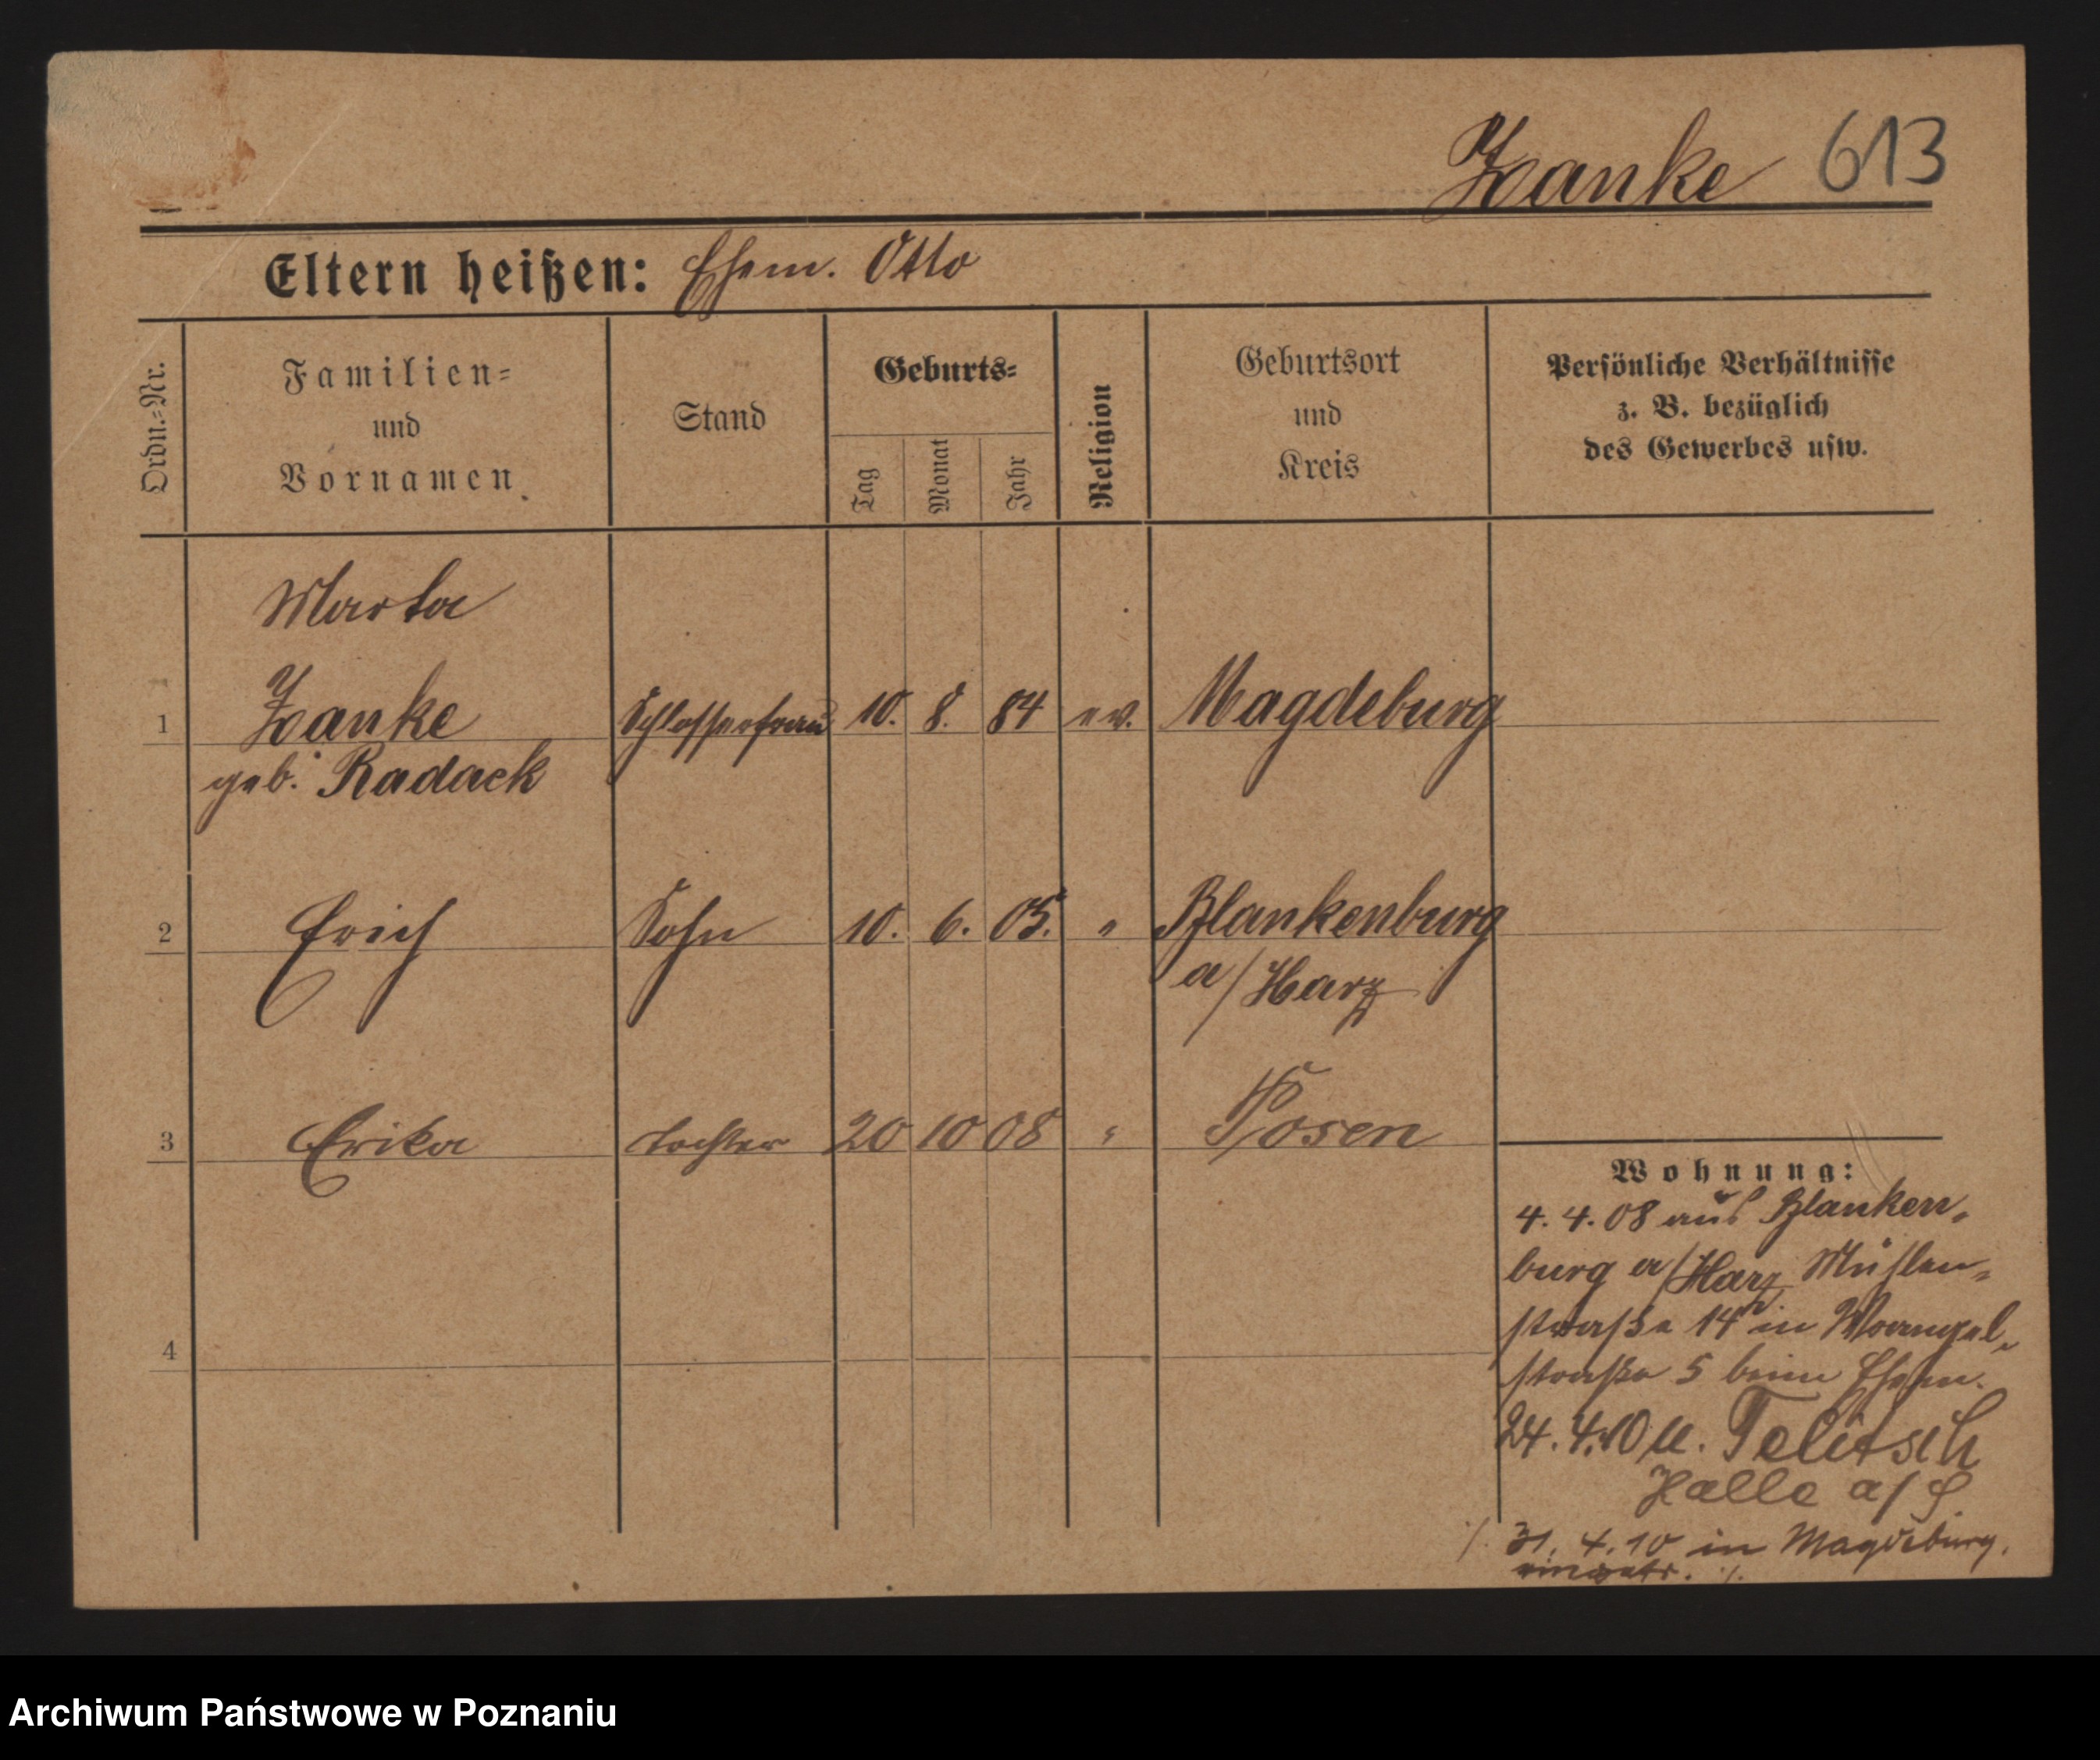 Zanke 613
Eltern heißen: Ehem. Otto
Ordn.=Nr.
Familien=
und
Vornamen
Stand
Geburts=
Tag
Monat
Jahr
Religion
Geburtsort
und
Kreis
Persönliche Verhältnisse
z. B. bezüglich
des Gewerbes usw.
Marta
1 Zanke Schlosserfrau 10. 8. 84 ev. Magdeburg
geb. Radack
2 Erich Sohn 10. 6. 05. " Blankenburg
a/Harz
3 Erika Tochter 20 10 08 " Posen
4
Wohnung:
4. 4. 08 aus Blanken-
burg a/Harz Mühlen-
straße 14 in Wrangel-
straße 5 beim Ehem.
24. 4. 10 u.
Halle a/S
31. 4. 10 in Magdeburg.
Archiwum Państwowe w Poznaniu